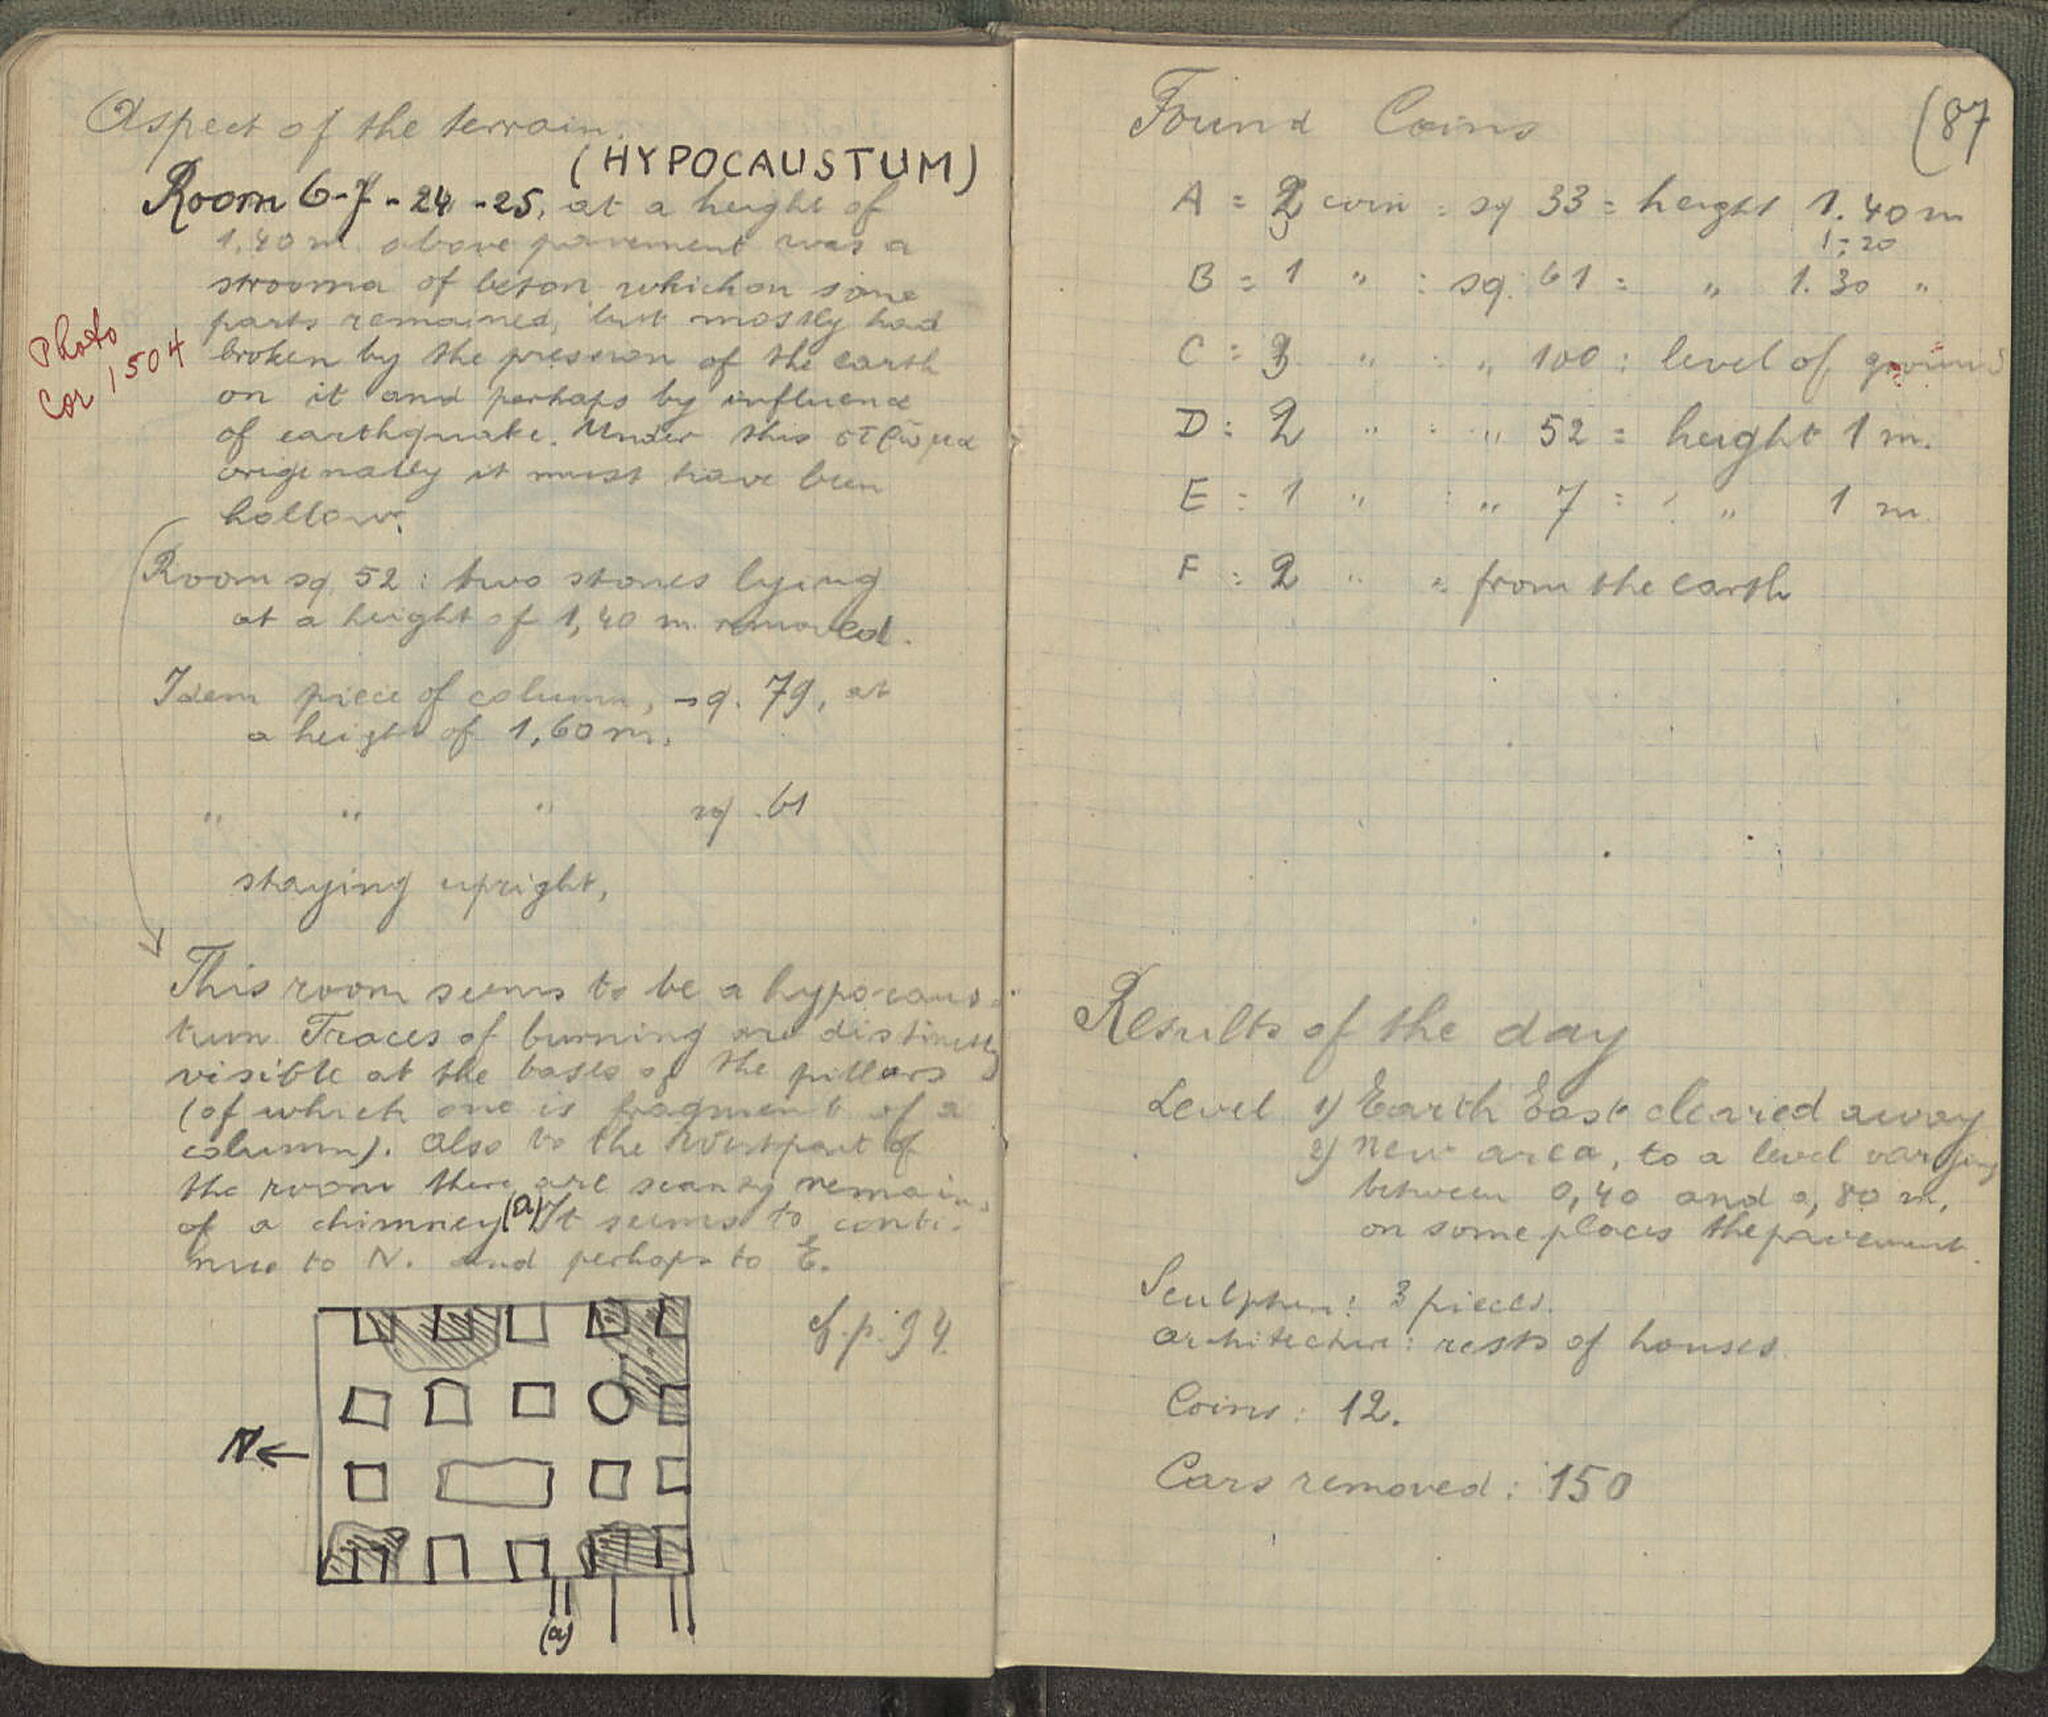 Aspect of the terrain.
(HYPOCAUSTUM)
Room 6-7-24-25, at a height of
1,40 m. above pavement was a
strooma of beton which on some
parts remained, but mostly had
broken by the pression of the earth
on it and perhaps by influence
of earthquake. Under this στρῶμα
originally it must have been
hollow.
Photo
Cor 1504
Room sq. 52 : two stones lying
at a height of 1,40 m. removed.
Idem piece of column, sq. 79, at
a height of 1,60 m.
" " " sq. 61
staying upright,
This room seems to be a hypocaus-
tum. Traces of burning are distinctly
visible at the bases of the pillars
(of which one is fragment of a
column). Also to the Westpart of
the room there are scanty remains
of a chimney (a) It seems to conti-
nue to N. and perhaps to E.
cf. p. 94
N
(a)
(87
Found Coins
A = 2 coin : sq 33 = height 1.40 m
1:20
B = 1 " : sq. 61 = " 1.30 "
C : 3 " : " 100 : level of ground
D : 2 " : " 52 = height 1 m.
E : 1 " : " 7 = : " 1 m.
F : 2 " = from the earth
Results of the day
Level 1) Earth East cleared away
2) New area, to a level varying
between 0,40 and 0,80 m,
on some places the pavement.
Sculpture : 3 pieces.
Architecture : rests of houses.
Coins : 12.
Cars removed : 150